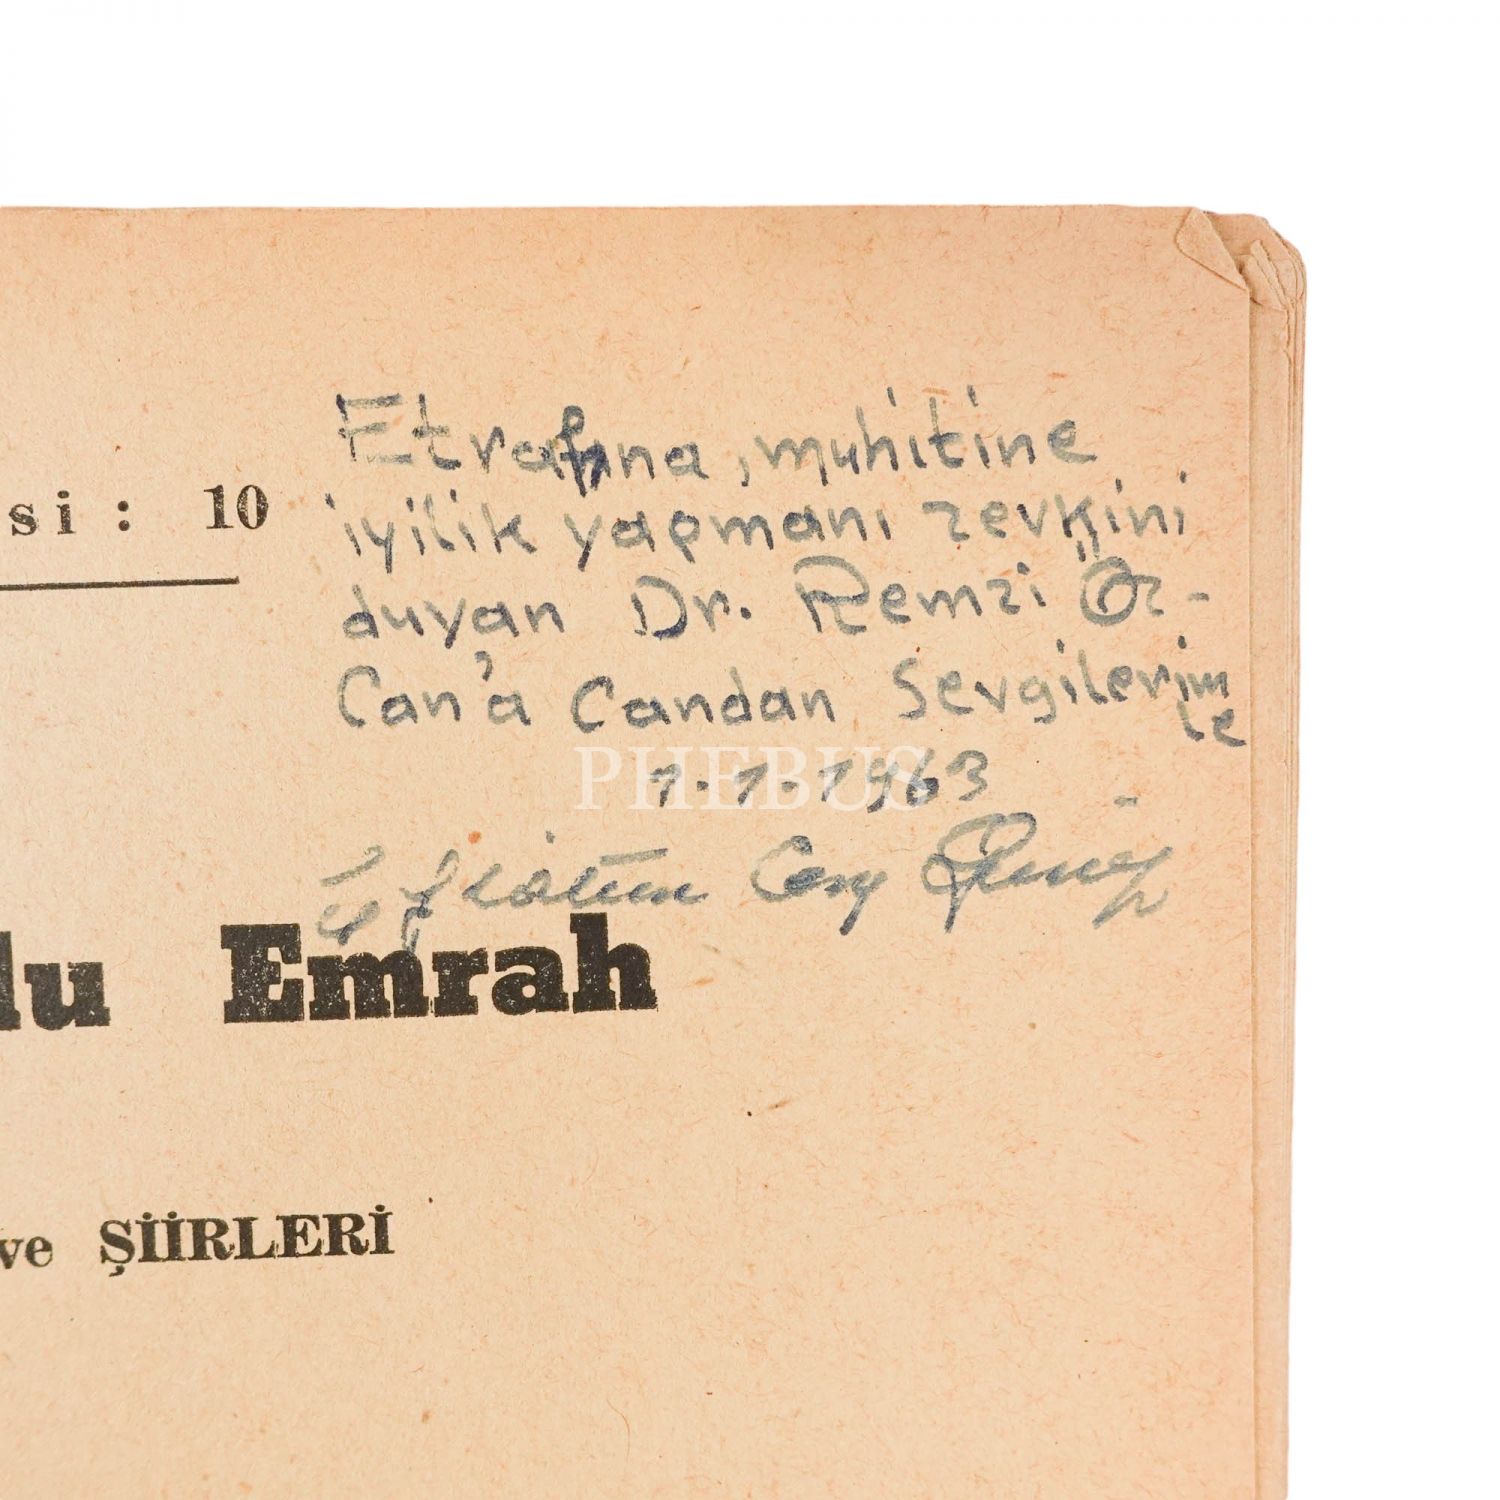 si : 10
Etrafına, muhitine
iyilik yapmanı zevkini
duyan Dr. Remzi Öz-
Can'a Candan Sevgilerim
le
PHEBUS
1.1.1963
Eflatun Cem Güney
lu Emrah
ve ŞİİRLERİ